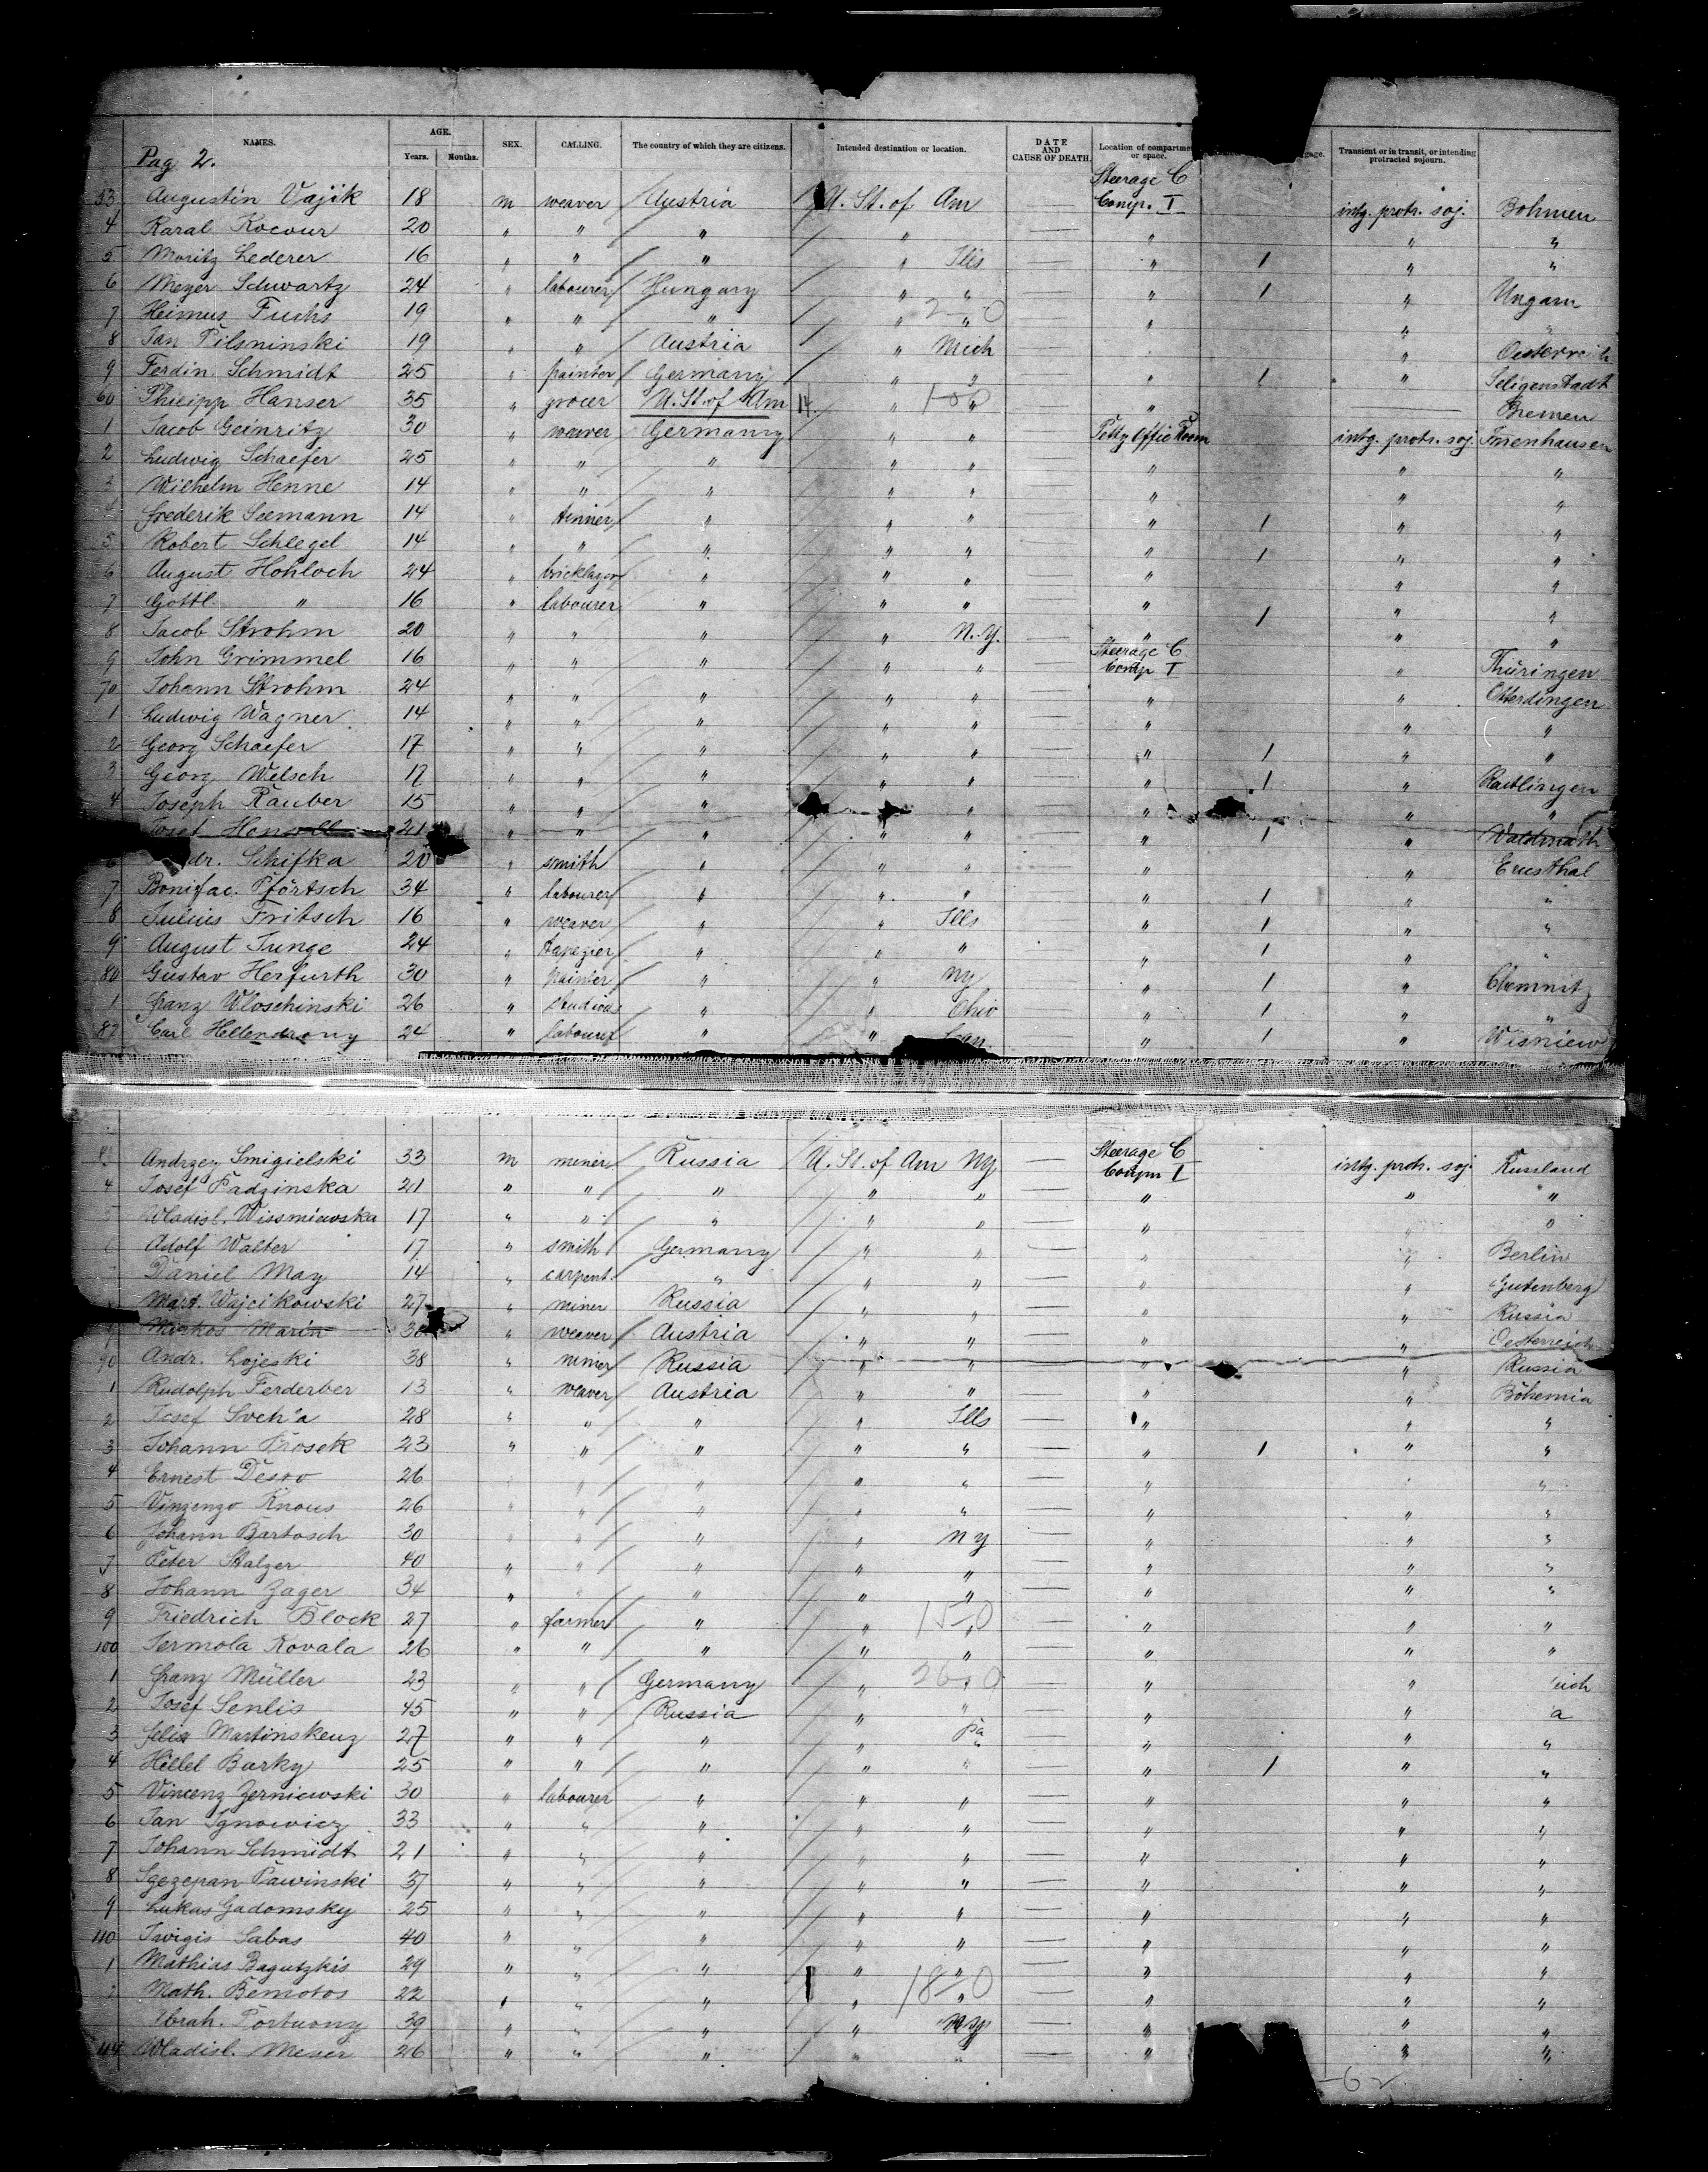 NAMES. AGE. SEX. CALLING. The country of which they are citizens. Intended destination or location. DATE AND CAUSE OF DEATH. Location of compartment or space. Transient or in transit, or intending protracted sojourn.
Years. Months.
Pag 2.
53 Augustin Vajik 18 m weaver Austria U. St. of Am — Steerage C Comp. I intg. protr. soj. Bohmen
4 Karal Kocour 20 " " " " — " " "
5 Moritz Lederer 16 " " " " Ills — " 1 " "
6 Meyer Schwartz 24 " labourer Hungary " " — " 1 " Ungarn
7 Heimus Fuchs 19 " " " " " — " " "
8 Jan Pilsninski 19 " " Austria " Mich — "
9 Ferdin. Schmidt 25 " painter Germany " " — " 1 " Seligenstadt
60 Philipp Hanser 35 " grocer U. St. of Am 14. " " — " — Bremen
1 Jacob Geinritz 30 " weaver Germany " " — Petty Offic Room intg. protr. soj.
2 Ludwig Schaefer 25 " " " " " — " " "
3 Wilhelm Henne 14 " " " " " — " " "
Frederik Seemann 14 " tinner " " " — " 1 " "
5 Robert Schlegel 14 " " " " " — " 1 " "
6 August Hohloch 24 " bricklayer " " " — " " "
7 Gottl. " 16 " labourer " " " — " 1 " "
8 Jacob Strohm 20 " " " " N.Y. — " " "
9 John Grimmel 16 " " " " " — Steerage C. Comp I " Thüringen
70 Johann Strohm 24 " " " " " — " " Otterdingen
1 Ludwig Wagner 14 " " " " " — " " "
2 Georg Schaefer 17 " " " " " — " 1 " "
3 Georg Welsch 17 " " " " " — " 1 "
4 Joseph Rauber 15 " " " " " — " " "
Josef 21 " " " " " — " 1 "
6 dr. Schifka 20 " smith " " " — " " Ernsthal
7 Bonifac. Pförtsch 34 " labourer " " " — " 1 " "
8 Julius Fritsch 16 " weaver " " Ills — " 1 " "
9 August Junge 24 " tapezier " " " — " 1 " "
80 Gustav Herfurth 30 " painter " " NY — " 1 " Chemnitz
1 Franz Wloschinski 26 " " " Ohio — " 1 " "
82 Carl 24 " labourer " " — " 1 " Wisniew
Andrzey Smigielski 33 m miner Russia U. St. of Am NY — Steerage C Comp I intg. protr. soj. Russland
4 Josef Padzinska 21 " " " " " — " " "
5 Wladisl. Wissmiewska 17 " " " " " — " " "
Adolf Walter 17 " smith Germany " " — " " Berlin
Daniel May 14 " carpent. " " " — " " Gutenberg
Mart. Wajcikowski 27 " miner Russia " " — " " Russia
Markos Marin " weaver Austria " " — " " Oesterreich
90 Andr. Lojeski 38 " miner Russia " " — " " Russia
1 Rudolph Ferderber 13 " weaver Austria " " — " " Böhemia
2 Josef Svcha 28 " " " " Ills — " " "
3 Johann Prosek 23 " " " " " — " 1 " "
4 Ernest 26 " " " " " — " "
5 Vinzenzo Knous 26 " " " " " — " " "
6 Johann Bartosch 30 " " " " NY — " " "
7 Peter Stalzer 40 " " " " " — " " "
8 Johann Zager 34 " " " " " — " " "
9 Friedrich Block 27 " farmer " " 150 — " " "
100 Jermola Kovala 26 " " " " " — " " "
1 Franz Müller 23 " " Germany " — " " eich
2 Josef Senlis 45 " " Russia " " — " " a
3 Felix Martinskeuz 27 " " " " Pa — " " "
4 Hillel Barky 25 " " " " " — " 1 " "
5 Vincenz Zerniewski 30 " labourer " " " — " " "
6 Jan Ignowicz 33 " " " " " — " " "
7 Johann Schmidt 21 " " " " " — " " "
8 Sgezepan Pawinski 37 " " " " " — " " "
9 Lukas Gadomsky 25 " " " " " — " " "
110 Iwigis Sabas 40 " " " " " — " " "
1 Mathias Bagutzkis 29 " " " " " — " " "
2 Math. Bemotos 22 " " " " 180 — " " "
Abrah. Portuony 39 " " " " NY — " " "
114 Wladisl. Meser 26 " " " " " — " " "
-62